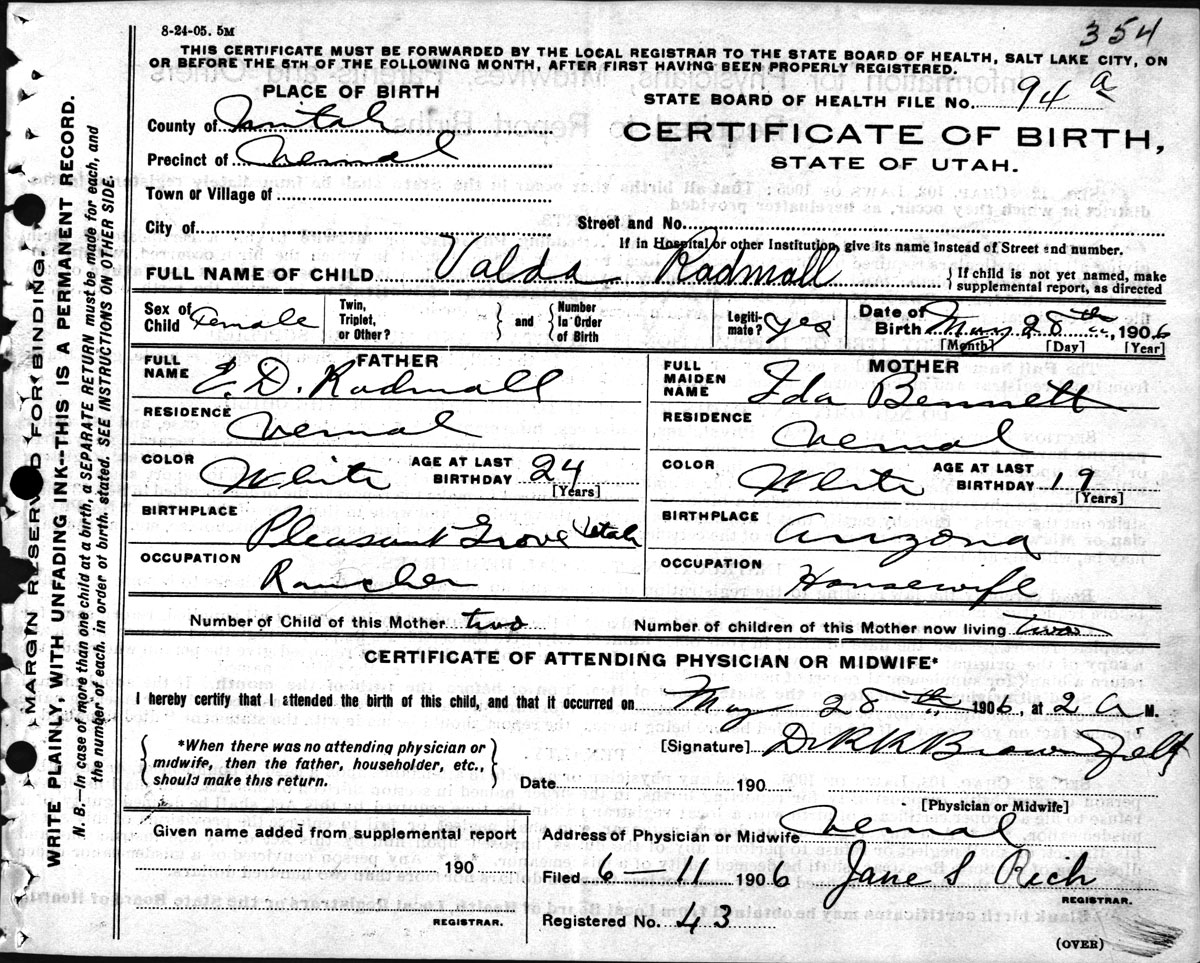 8-24-05. 5M
354
THIS CERTIFICATE MUST BE FORWARDED BY THE LOCAL REGISTRAR TO THE STATE BOARD OF HEALTH, SALT LAKE CITY, ON
OR BEFORE THE 5TH OF THE FOLLOWING MONTH, AFTER FIRST HAVING BEEN PROPERLY REGISTERED.
PLACE OF BIRTH
STATE BOARD OF HEALTH FILE No. 94 a
County of Uintah
CERTIFICATE OF BIRTH,
Precinct of Vernal
STATE OF UTAH.
Town or Village of
City of
Street and No.
If in Hospital or other Institution, give its name instead of Street and number.
FULL NAME OF CHILD Valda Radmall
} If child is not yet named, make
supplemental report, as directed
Sex of Child Female
Twin, Triplet, or Other? } and { Number In Order of Birth
Legiti-mate? Yes
Date of Birth May 28th, 1906
[Month] [Day] [Year]
FATHER
FULL NAME E. D. Radmall
RESIDENCE Vernal
COLOR White
AGE AT LAST BIRTHDAY 24
[Years]
BIRTHPLACE Pleasant Grove Utah
OCCUPATION Rancher
MOTHER
FULL MAIDEN NAME Ida Bennett
RESIDENCE Vernal
COLOR White
AGE AT LAST BIRTHDAY 19
[Years]
BIRTHPLACE Arizona
OCCUPATION Housewife
Number of Child of this Mother two
Number of children of this Mother now living Two
CERTIFICATE OF ATTENDING PHYSICIAN OR MIDWIFE*
I hereby certify that I attended the birth of this child, and that it occurred on May 28th, 1906, at 2 A M.
{ *When there was no attending physician or
midwife, then the father, householder, etc.,
should make this return. }
[Signature] Dr
Date 190
[Physician or Midwife]
Given name added from supplemental report
190
REGISTRAR.
Address of Physician or Midwife Vernal
Filed 6-11 1906 Jane S Rich
REGISTRAR.
Registered No. 43
(OVER)
MARGIN RESERVED FOR BINDING
WRITE PLAINLY, WITH UNFADING INK--THIS IS A PERMANENT RECORD.
N. B.--In case of more than one child at a birth, a SEPARATE RETURN must be made for each, and
the number of each, in order of birth, stated. SEE INSTRUCTIONS ON OTHER SIDE.